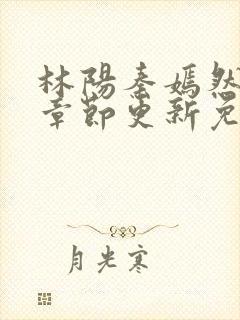 林陽秦嫣然
章節更新免
月光寒